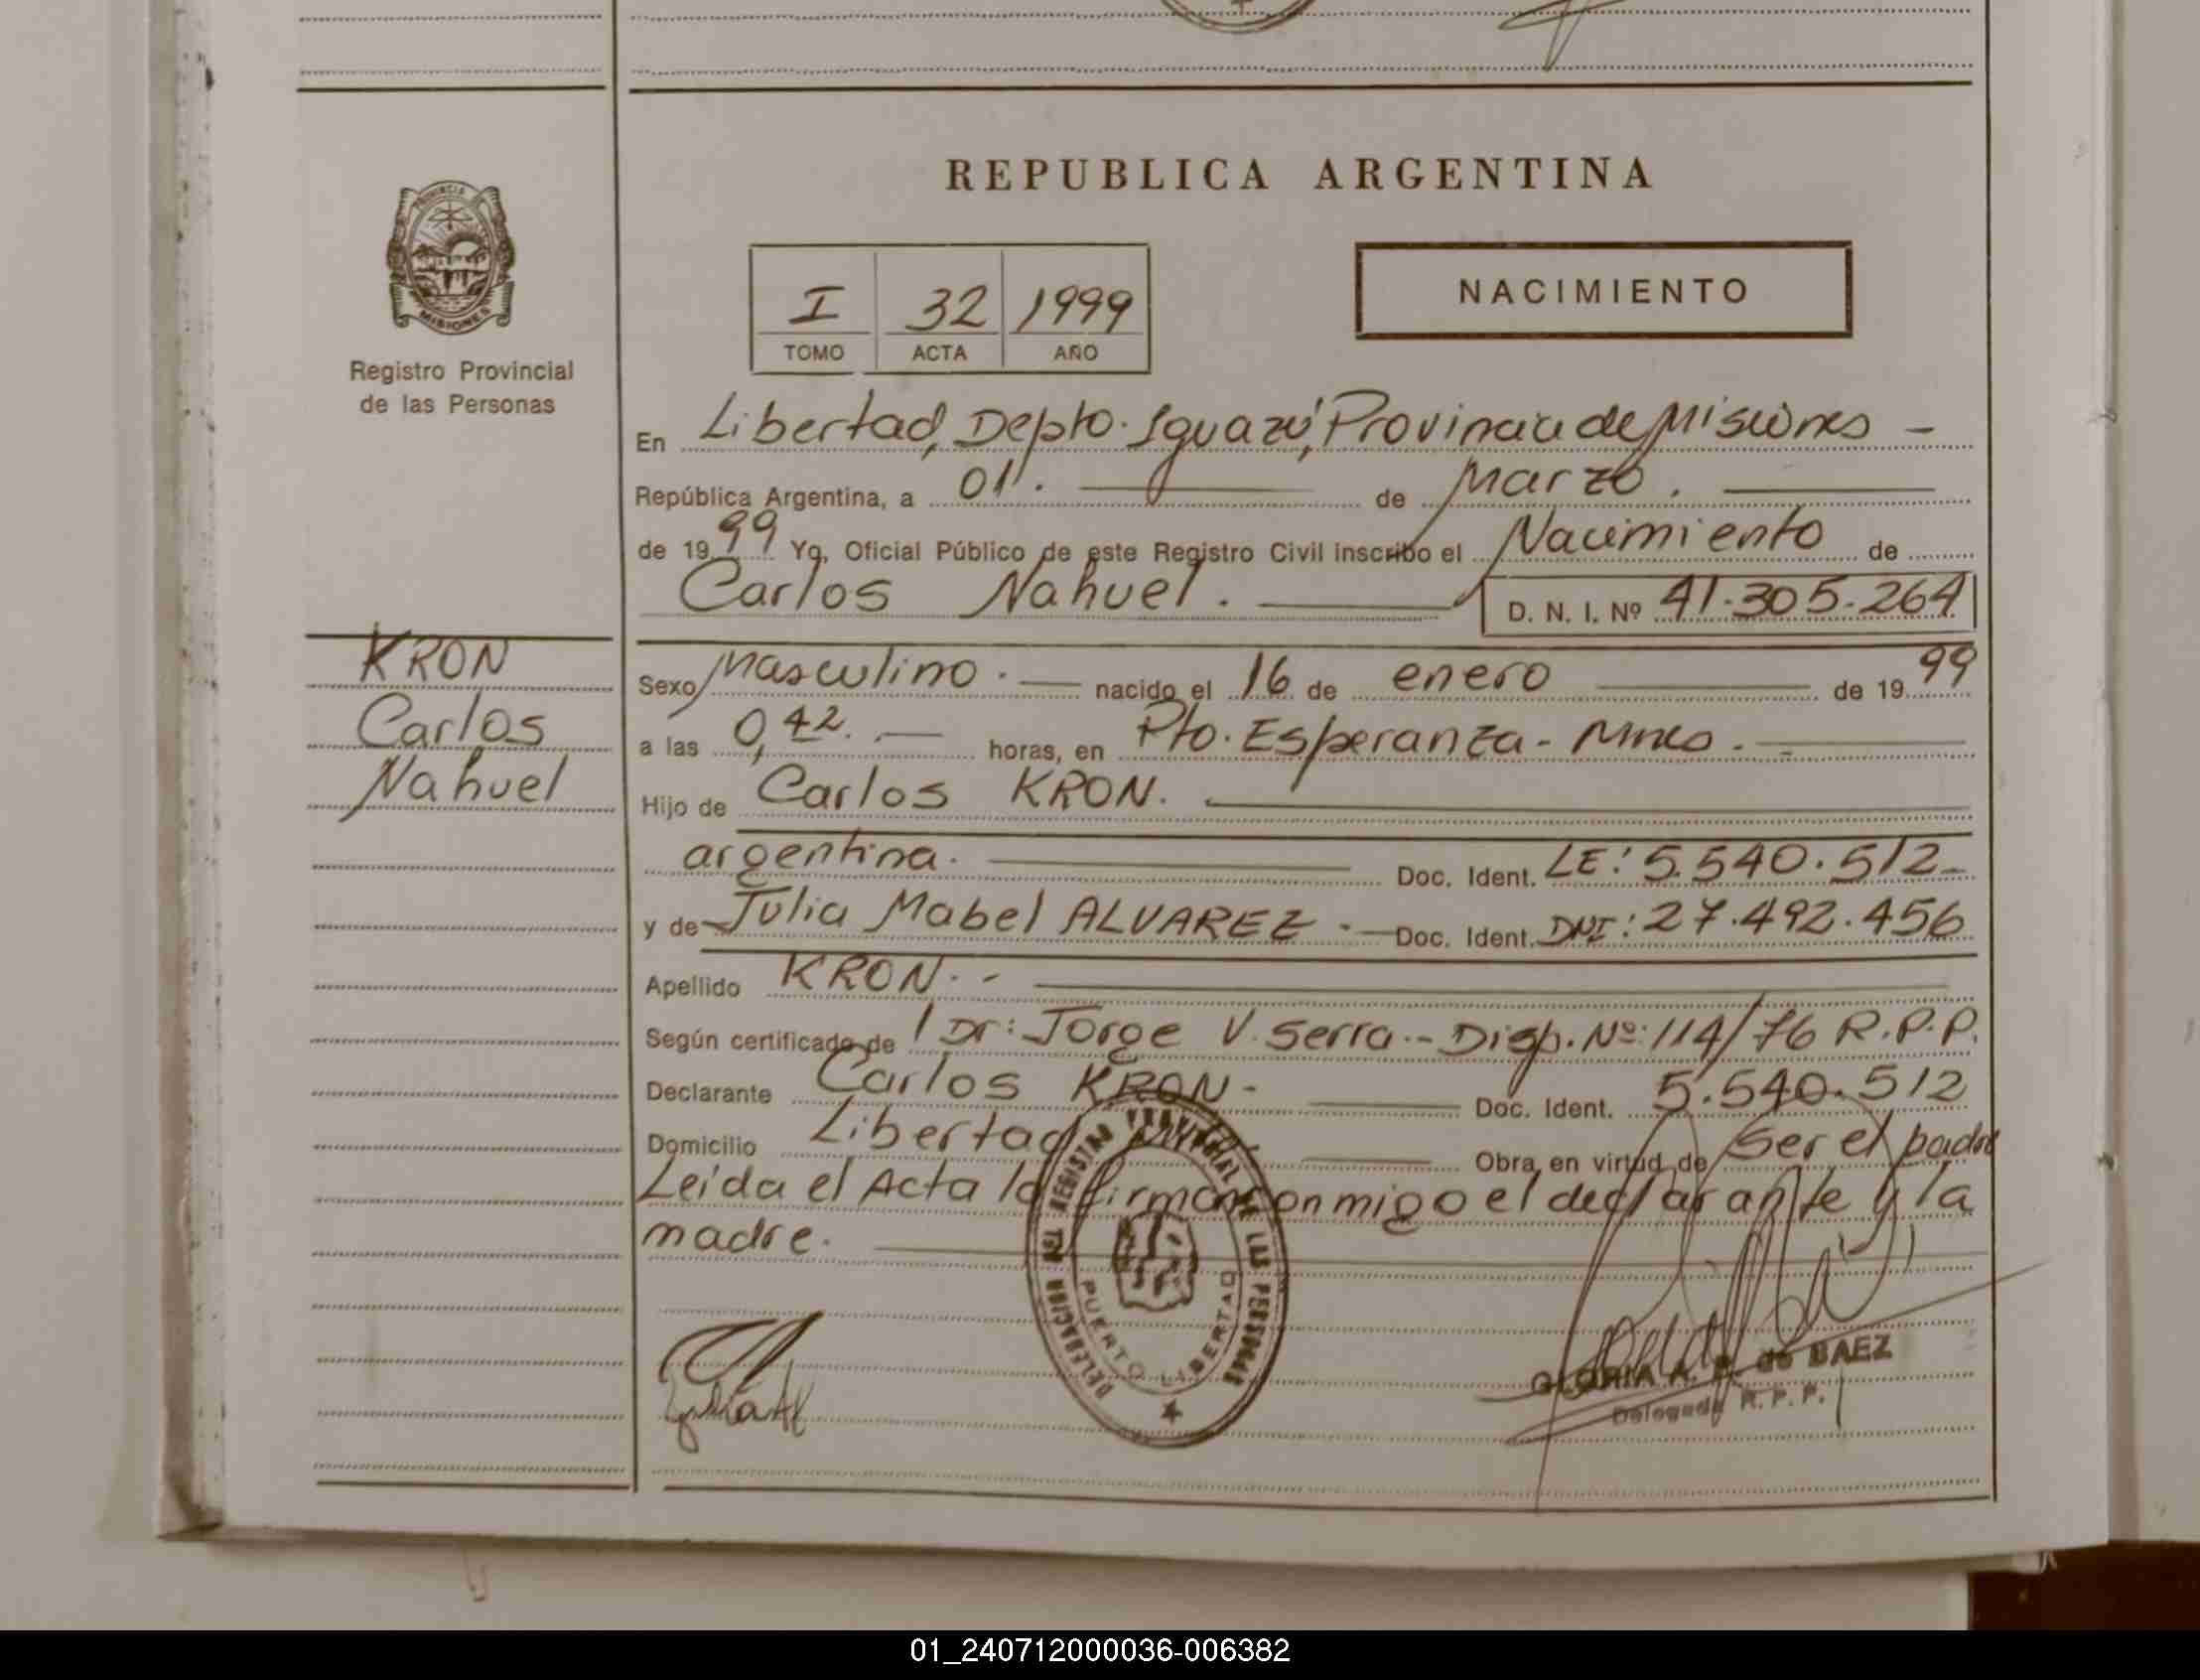 REPUBLICA ARGENTINA
PROVINCIA DE
MISIONES
Registro Provincial
de las Personas
I 32 1999
TOMO ACTA AÑO
NACIMIENTO
En Libertad, Depto. Iguazú, Provincia de Misiones -
República Argentina, a 01. de Marzo.
de 1999 Yo, Oficial Público de este Registro Civil inscribo el Nacimiento de
Carlos Nahuel. D. N. I. Nº 41.305.264
KRON
Carlos
Nahuel
Sexo Masculino. - nacido el 16 de enero de 1999
a las 0,42. - horas, en Pto. Esperanza - Mnes. -
Hijo de Carlos KRON.
argentina. Doc. Ident. LE: 5.540.512-
y de Julia Mabel ALVAREZ - Doc. Ident. DNI: 27.492.456
Apellido KRON. -
Según certificado de / Dr: Jorge V. Serra.- Disp. Nº: 114/76 R.P.P.
Declarante Carlos KRON - Doc. Ident. 5.540.512
Domicilio Libertad Obra en virtud de Ser el padre
Leída el Acta la firman conmigo el declarante y la
madre.
DELEGACION REGISTRO PROVINCIAL DE LAS PERSONAS
PUERTO LIBERTAD
GLORIA A. de BAEZ
Delegada R. P. P.
01_240712000036-006382